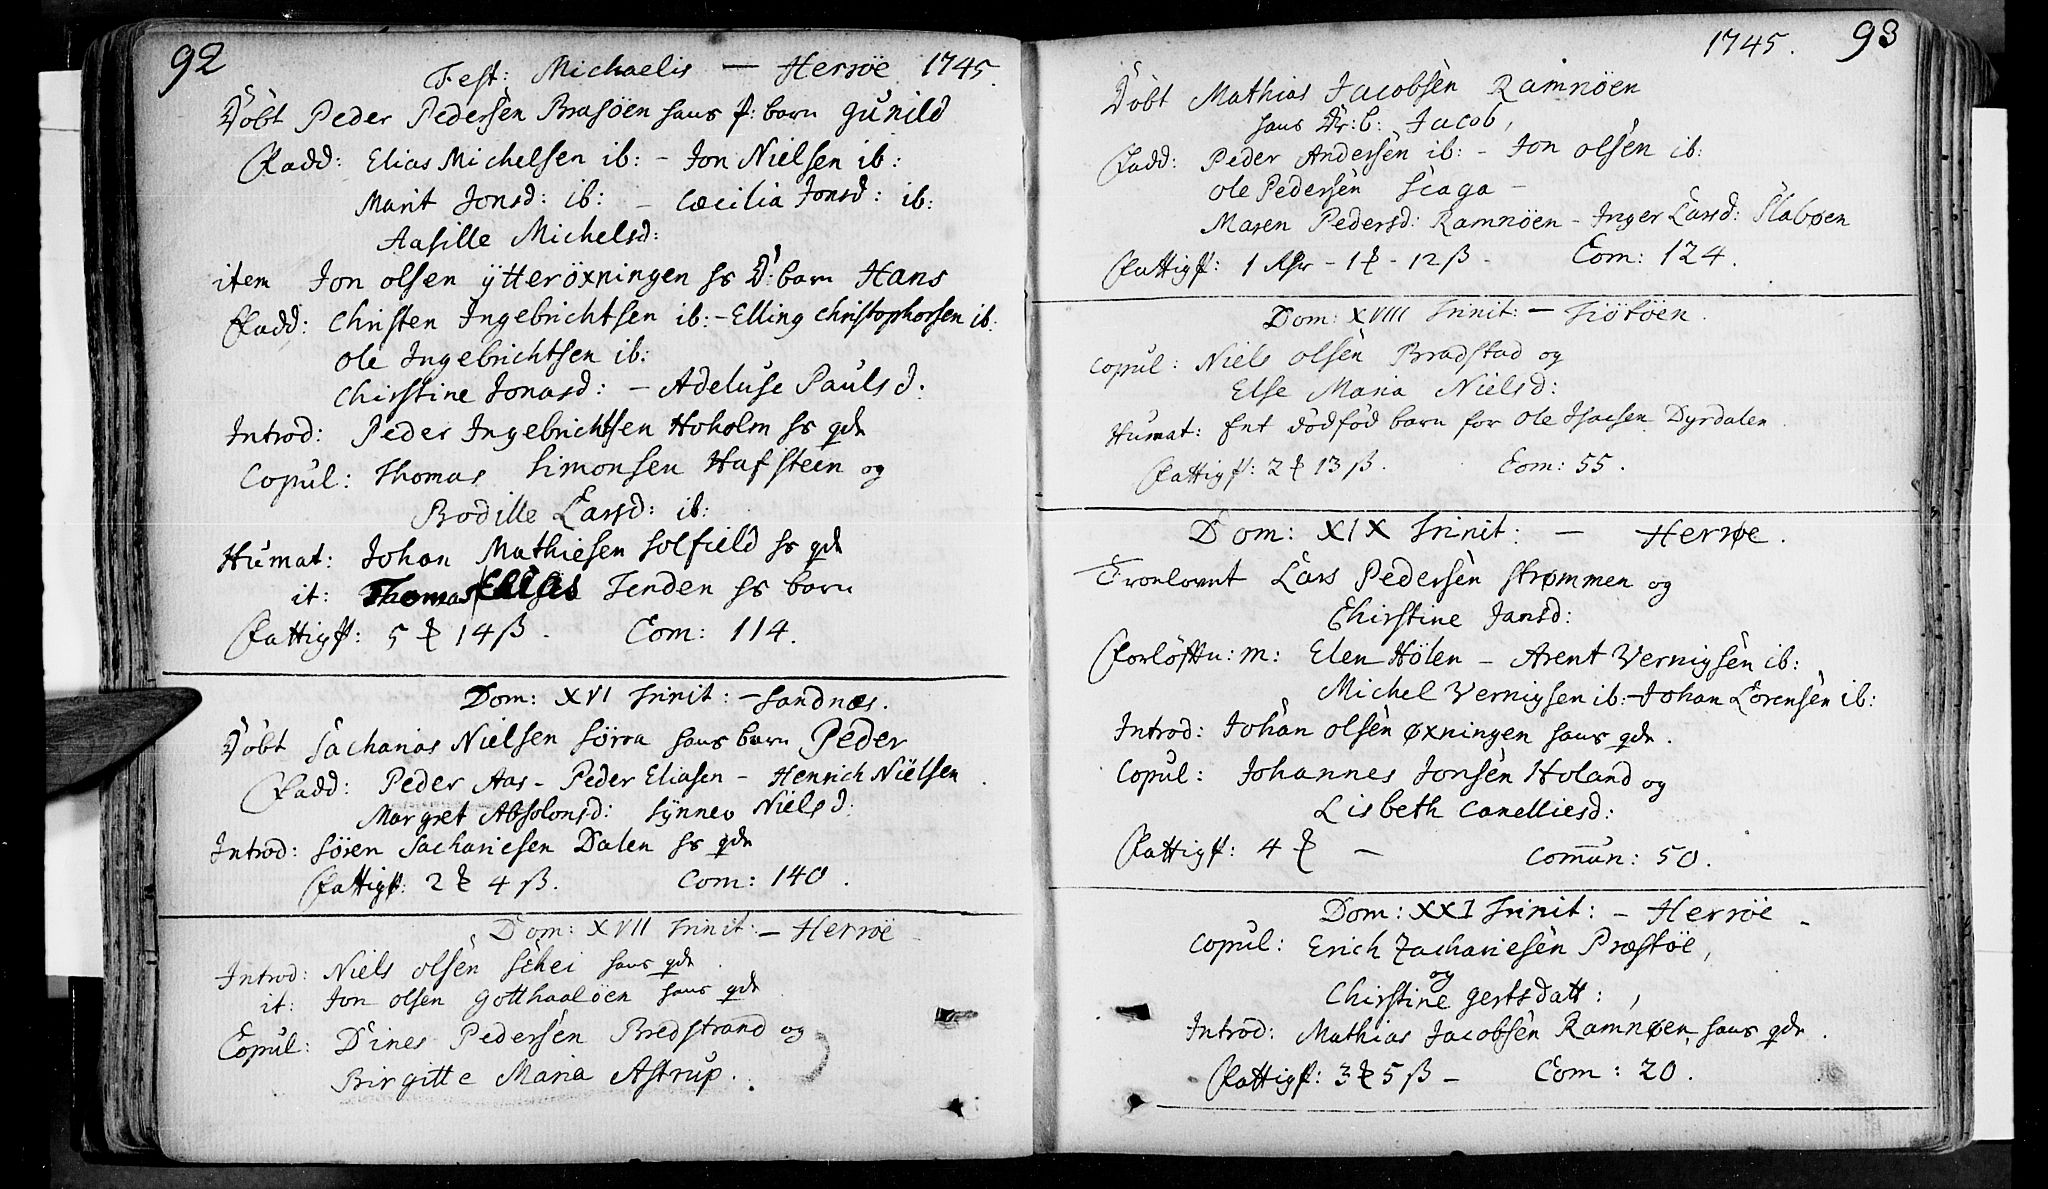 92
Fest: Michaelis — Herröe 1745.
Döbt Peder Pedersen Brasöen hans p: barn Gunild
Fadd: Elias Michelsen ib: – Jon Nielsen ib:
Marit Jonsd: ib: – Cæcilia Jonsd: ib:
Aasille Michelsd:
item Jon olsen ÿtteröxningen hs D: barn Hans
Fadd: Christen Ingebrichtsen ib: – Elling Christophersen ib:
Ole Ingebrichtsen ib:
Christine Jonasd: – Adeluse Paulsd:
Introd: Peder Ingebrichtsen Hoholm hs qde
Copul: Thomas Simonsen Hafsteen og
Bodille Larsd: ib:
Humat: Johan Mathiesen Solfield hs qde
it: Thomas Elias Tenden hs barn
Fattigp: 5 ℔ 14 ß. Com: 114.
Dom: XVI Trinit: – Sandnæs.
Döbt Sacharias Nielsen Sörra hans barn Peder
Fadd: Peder Aas – Peder Eliasen – Henrich Nielsen.
Margret Absolonsd: Sÿnnev Nielsd:
Introd: Sören Sachariesen Dalen hs qde
Fattigp: 2 ℔ 4 ß. Com: 140.
Dom: XVII Trinit: – Herröe
Introd: Niels olsen Schei hans qde.
it: Jon olsen Gotthaalöen hans qde
Copul: Dines Pedersen Bredstrand og
Birgitte Maria Astrup.
1745. 93
Döbt Mathias Jacobsen Ramnöen
hans Dr: b: Jacob,
Fadd: Peder Andersen ib: – Jon olsen ib:
Ole Pedersen Scaga –
Maren Pedersd: Ramnöen – Inger Larsd: Slaböen
Fattigp: 1 Rdr – 1 ℔ – 12 ß – Com: 124.
Dom: XVIII Trinit: – Tiötöen.
Copul: Niels olsen Bradstad og
Else Maria Nielsd:
Humat: Ent dödföd barn for Ole Isacsen Dyrdalen.
Fattigp: 2 ℔ 13 ß. Com: 55.
Dom: XIX Trinit: — Herrøe.
Trolovet Lars Pedersen Strømmen og
Christine Jansd:
Forløftn: m: Elen Hölen – Arent Vernigsen ib:
Michel Vernigsen ib: – Johan Lorensen ib:
Introd: Johan olsen øxningen hans qde.
Copul: Johannes Jonsen Holand og
Lisbeth Canelliesd:
Fattigp: 4 ℔ — Comun: 50.
Dom: XXI Trinit: – Herröe –
Copul: Erich Zachariesen Præstöe,
og
Christine Gertsdatt:,
Introd: Mathias Jacobsen Ramnøen, hans qde.
Fattigp: 3 ℔ 5 ß – Com: 20.